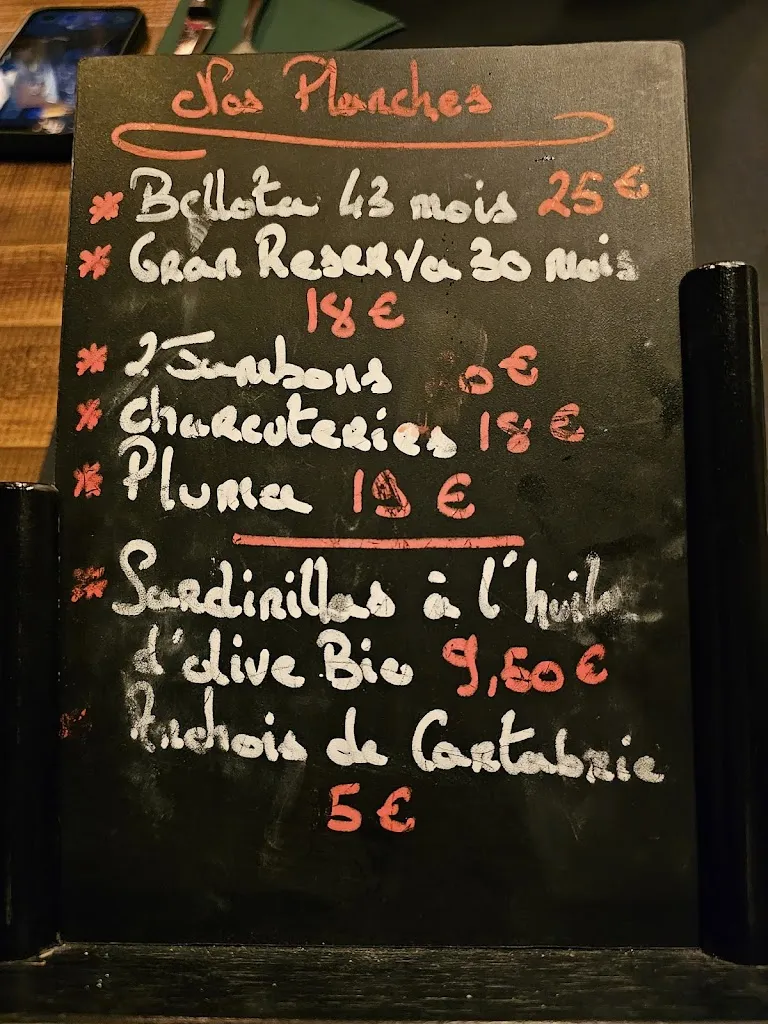 Nos Planches
* Bellota 43 mois 25 €
* Gran Reserva 30 mois
18 €
* 2 Jambons 0 €
* charcuteries 18 €
* Pluma 19 €
* Sardinillas à l'huile
d'olive Bio 9,50 €
Anchois de Cantabrie
5 €